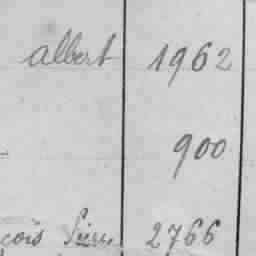 albert 1962
900
çois Pierre 2766